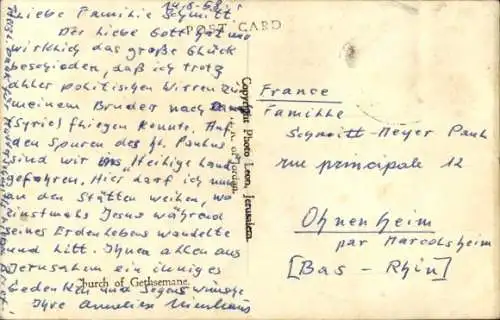 14.6.58
Liebe Familie Schmitt.
POST CARD
Der liebe Gott hat mir
wirklich das große Glück
beschieden, daß ich trotz
aller politischen Wirren zu
meinem Bruder nach
(Syrie) fliegen konnte. Auf
den Spuren des hl. Paulus
sind wir ins "Heilige Land"
gefahren. Hier darf ich nun
an den Stätten weilen, wo
einstmals Jesus während
seines Erdenlebens wandelte
und litt. Ihnen allen aus
Jerusalem ein inniges
Gedenken und Segenswünsche
Ihre Anneliese
Church of Gethsemane.
Copyright Photo Leon, Jerusalem.
H.K. of Jordan.
France
Famille
Schmitt-Meyer Paul
rue principale 12
Ohnenheim
par Marcolsheim
[Bas - Rhin]